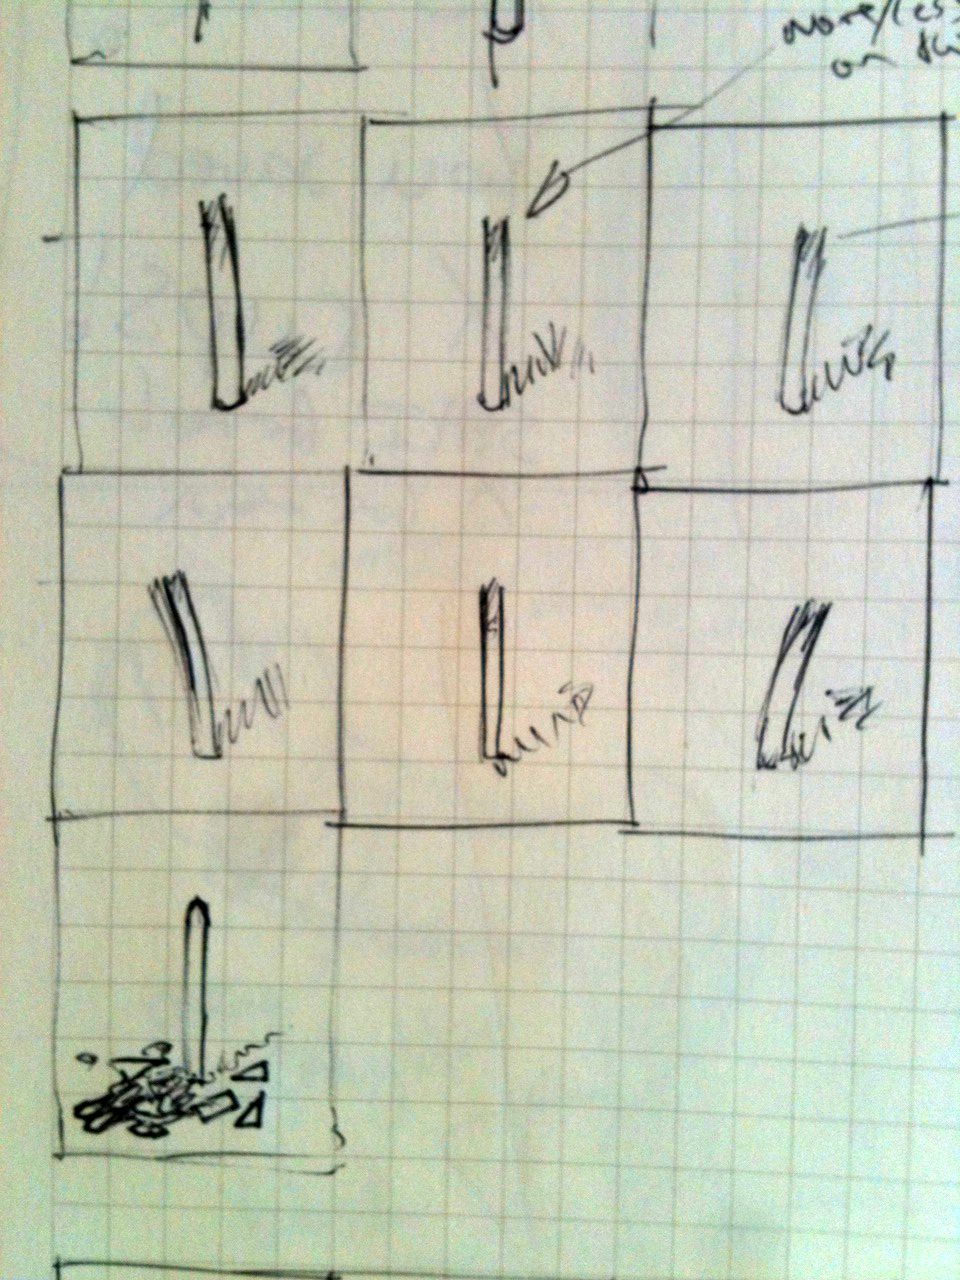 more/less
on thi